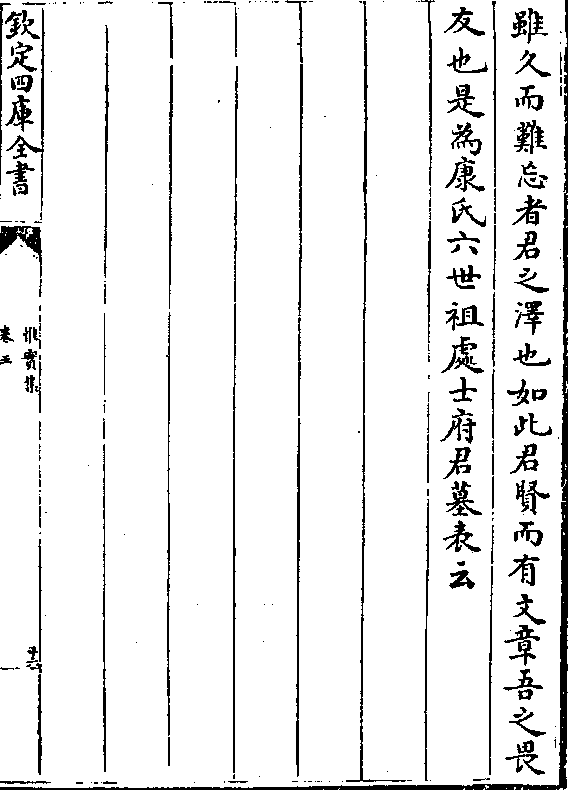 雖久而難忘者君之澤也如此君賢而有文章吾之畏
友也是為康氏六世祖處士府君墓表云
欽定四庫全書
惟實集
卷五